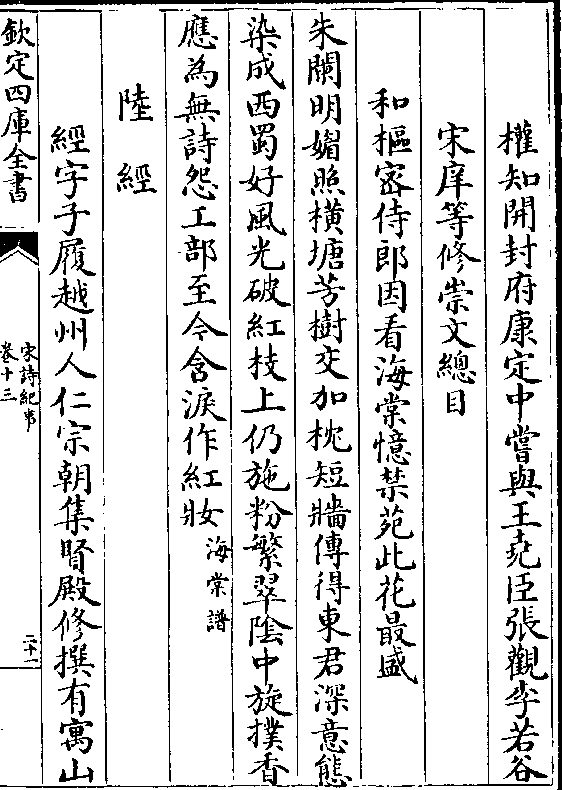 權知開封府康定中嘗與王堯臣張觀李若谷
宋庠等修崇文總目
和樞宻侍郎因看海棠憶禁苑此花最盛
朱闌明媚照橫塘芳樹交加枕短牆傳得東君深意態
染成西蜀好風光破紅枝上仍施粉繁翠陰中旋撲香
應為無詩怨工部至今含淚作紅妝海棠譜
陸經
經字子履越州人仁宗朝集賢殿修撰有寓山
欽定四庫全書
宋詩紀事
卷十三
二十一